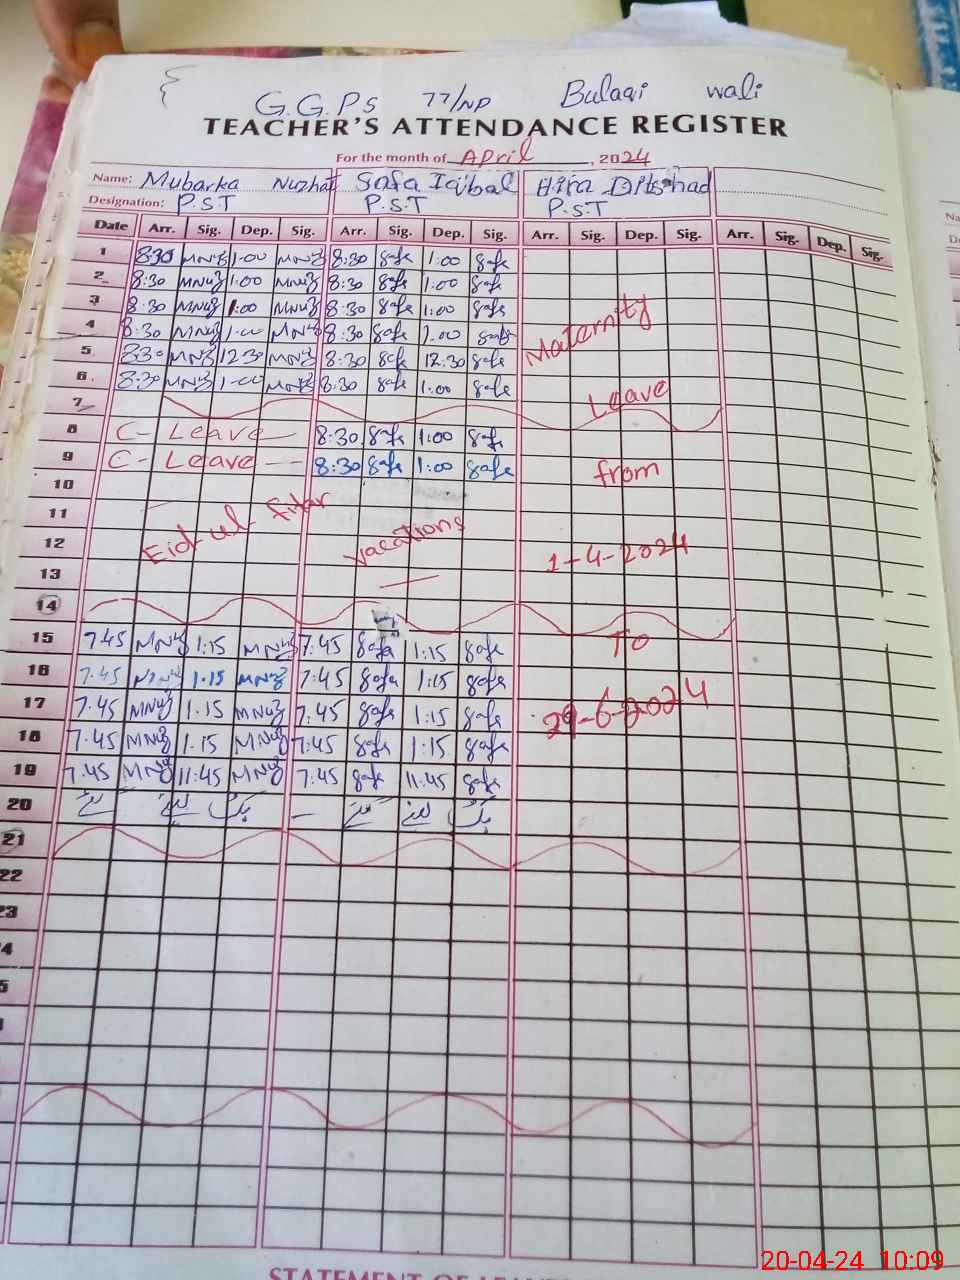 G.G.P.S 77/NP Bulaqi wali
TEACHER'S ATTENDANCE REGISTER
For the month of April, 2024
Name: Mubarka Nuzhat Safa Iqbal Hira Dilshad
Designation: P.S.T P.S.T P.S.T
Date Arr. Sig. Dep. Sig. Arr. Sig. Dep. Sig. Arr. Sig. Dep. Sig. Arr. Sig. Dep. Sig.
1 8:30 1:00 8:30 Safa 1:00 Safa
2 8:30 1:00 8:30 Safa 1:00 Safa
3 8:30 1:00 8:30 Safa 1:00 Safa
4 8:30 1:00 8:30 Safa 1:00 Safa
Maternity
5 8:30 12:30 8:30 Safa 12:30 Safa
6 8:30 1:00 8:30 Safa 1:00 Safa
Leave
7
8 C- Leave 8:30 Safa 1:00 Safa
9 C- Leave 8:30 Safa 1:00 Safa
from
10
11
Eid ul fitar vacations
12
1-4-2024
13
14
15 7:45 1:15 7:45 Safa 1:15 Safa
To
16 7:45 1:15 7:45 Safa 1:15 Safa
17 7:45 1:15 7:45 Safa 1:15 Safa
29-6-2024
18 7:45 1:15 7:45 Safa 1:15 Safa
19 7:45 11:45 7:45 Safa 11:45 Safa
20
21
22
23
STATEMENT OF
20-04-24 10:09